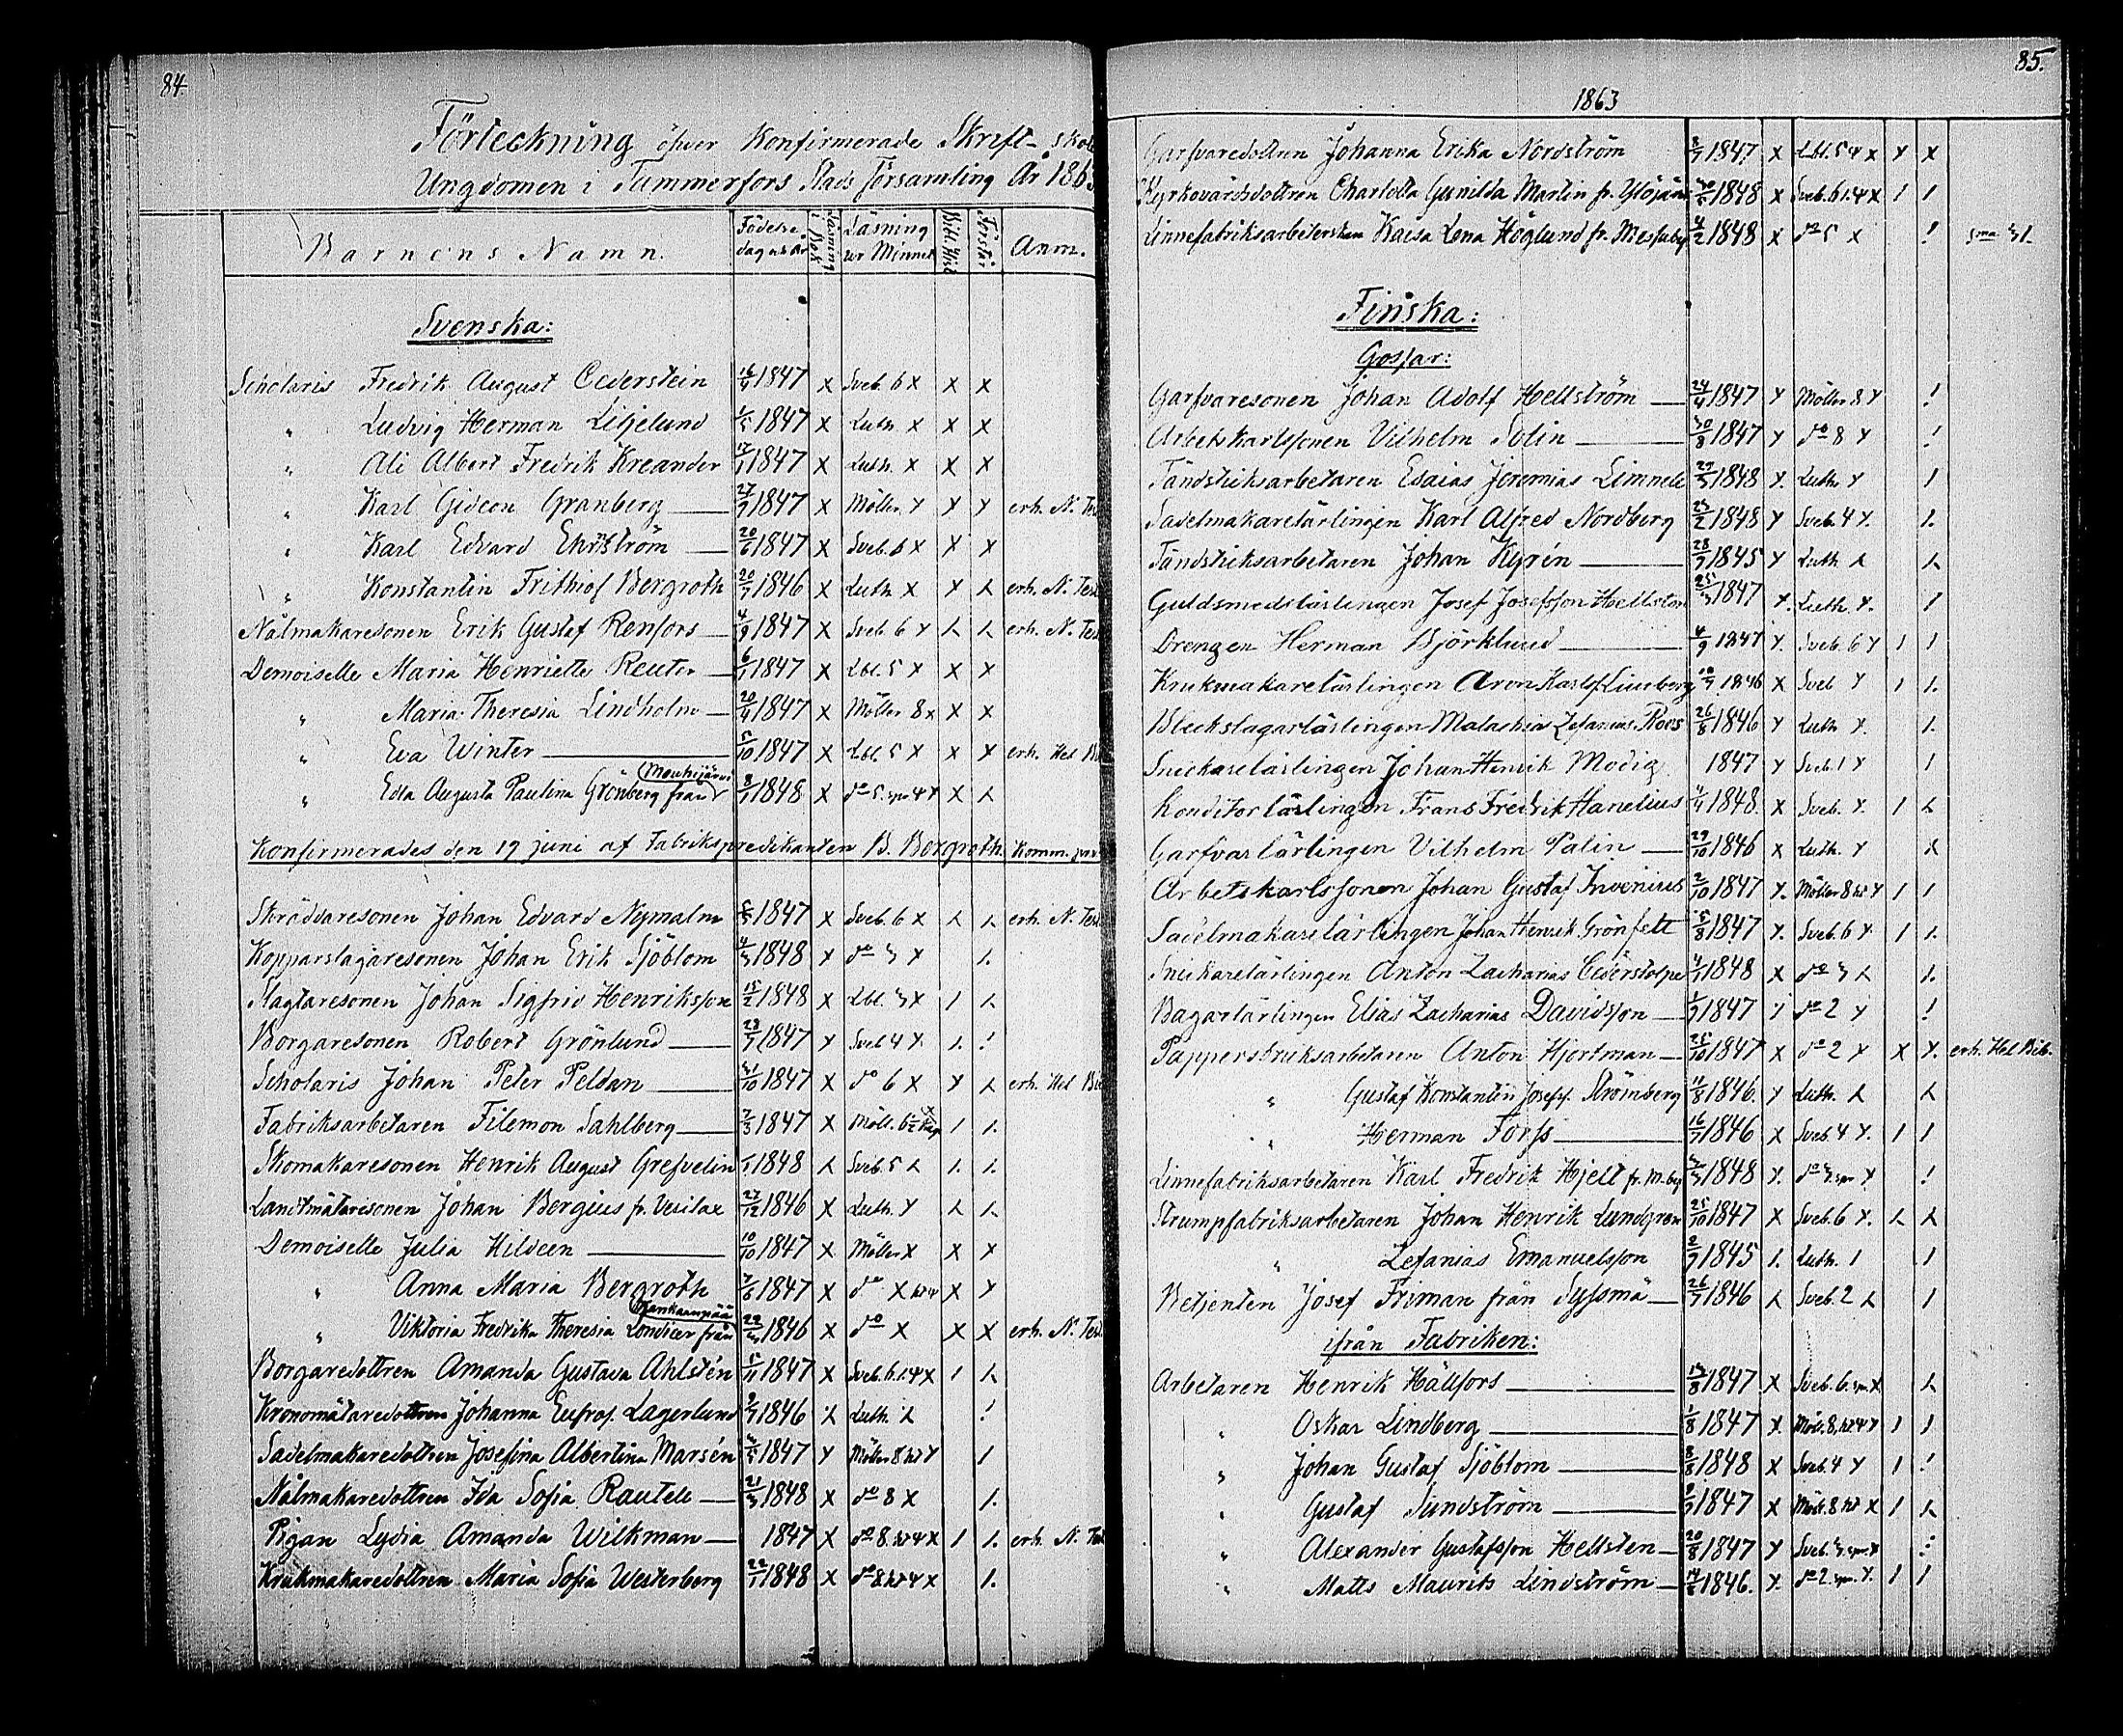 84.
Förteckning öfver Konfirmerade Skrift-skole
Ungdomen i Tammerfors Stads församling År 1863
Barnens Namn. Födelse dag och År Innan i Bok Läsning ur Minnet Bibl. Hist. Förstår Anm.
Svenska:
Scholaris Fredrik August Cederstein 16/4 1847 x Sveb. 6 x x x
" Ludvig Herman Liljelund 1847 x Luth. x x x
" Ali Albert Fredrik Kreander 1847 x Luth. x x x
" Karl Gideon Granberg 1847 x Möller x x x erh. N. Tes
" Karl Edvard Ehrström 20/6 1847 x Sveb. 6 x x x
" Konstantin Frithiof Bergroth 1846 x Luth x x x erh. N. Tes
Nålmakaresonen Erik Gustaf Renfors 4/9 1847 x Sveb. 6 x x x erh. N. Tes
Demoiselle Maria Henriette Reuter 6/1 1847 x Lbl. 5 x x x
" Maria Theresia Lindholm 20/4 1847 x Möller 8 x x x
" Eva Winter 5/10 1847 x Lbl. 5 x x x erh. Hel Bi
" Edla Augusta Paulina Grönberg från Mouhijärvi 8/1 1848 x do 5. x x
Konfirmerades den 19 juni af Fabrikspredikanten B. Bergroth. Komm.
Skräddaresonen Johan Edvard Nymalm 1847 x Sveb. 6 x x x erh. N. Tes
Kopparslagaresonen Johan Erik Sjöblom 4/3 1848 x do 3 x 1.
Slagtaresonen Johan Sigfrid Henriksson 15/2 1848 x Lbl. 3 x 1 x
Borgaresonen Robert Grönlund 1847 x Sveb 4 x 1. !
Scholaris Johan Peter Peldan 31/10 1847 x do 6 x x x erh. Hel Bi
Fabriksarbetaren Filemon Sahlberg 7/3 1847 x Möll. 6 1 1.
Skomakaresonen Henrik August Grefvelin 1848 x Sveb. 5 x 1. 1.
Landtmätaresonen Johan Bergius fr. Vesilax 27/12 1846 x Luth. x x x
Demoiselle Julia Hildeen 10/10 1847 x Möller x x x
" Anna Maria Bergroth 7/6 1847 x do x x x
" Viktoria Fredrika Theresia Londicer från Kankaanpää 1846 x do x x x erh. N. Tes.
Borgaredottren Amanda Gustava Ahlstén 1847 x Sveb. 6. 1. 4 x 1 x
Kronomätaredottren Johanna Eufros. Lagerlund 1846 x Luth. x !
Sadelmakaredottren Josefina Albertina Marsén 1847 x Möller 8 x 1
Nålmakaredottren Ida Sofia Rautell 21/3 1848 x do 8 x 1.
Pigan Lydia Amanda Wilkman 1847 x do 8. 4 x 1 1. erh. N. Tes
Krukmakaredottren Maria Sofia Westerberg 22/1 1848 x do 8. 4 x 1.
85.
1863
Garfvaredottren Johanna Erika Nordström 1847 x Lbl. 5 4 x x x
Kyrkovärdsdottren Charlotta Gunilda Martin fr. Ylöjärvi 1848 x Sveb. 6 1. 4 x 1 1
Linnefabriksarbeterskan Kaisa Lena Höglund fr. Messuby 4/2 1848 x do 5 x !
Finska:
Gossar:
Garfvaresonen Johan Adolf Hellström 24/4 1847 x Möller 8 x !
Arbetskarlssonen Vilhelm Solin 30/8 1847 x do 8 x !
Tändsticksarbetaren Esaias Jeremias Limnele 1848 x Luth x 1
Sadelmakarelärlingen Karl Alfred Nordberg 23/2 1848 x Sveb. 4 x. 1.
Tändsticksarbetaren Johan Kyrén 28/9 1845 x Luth x x
Guldsmedslärlingen Josef Josefsson Hellsten 25/3 1847 x. Luth. x. 1
Drengen Herman Björklund 4/9 1847 x. Sveb. 6 x 1 1
Krukmakarelärlingen Aron Karlsf. Lindberg 1846 x Sveb x 1 1.
Bleckslagarlärlingen Malachias Zefanias Roos 26/8 1846 x Luth x. 1.
Snickarelärlingen Johan Henrik Modig 1847 x Sveb. 1 x 1
Konditorlärlingen Frans Fredrik Hanelius 4/4 1848. x Sveb. x. 1 x
Garfvarlärlingen Vilhelm Palin 29/10 1846 x Luth. x x
Arbetskarlssonen Johan Gustaf Invenius 2/10 1847 x. Möller 8 x 1 1
Sadelmakarelärlingen Johan Henrik Grönfelt 5/8 1847 x. Sveb. 6 x. 1 1.
Snickarelärlingen Anton Zacharias Cederstolpe 1848 x do 3 x 1.
Bagarlärlingen Elias Zacharias Davidsson 1847 x do 2 x !
Pappersbruksarbetaren Anton Hjortman 25/10 1847 x do 2 x x x. erh. Hel Bib.
" Gustaf Konstantin Josefs. Strömberg 11/8 1846. x Luth. x x
" Herman Forss 1846 x Sveb. 4 x. 1 1
Linnefabriksarbetaren Karl Fredrik Hjelt fr. M-by 1848 x. do 3. x !
Strumpfabriksarbetaren Johan Henrik Lundgren 25/10 1847 x Sveb. 6 x. x x
" Zefanias Emanuelsson 1845 1. Luth. 1 1
Betjenten Josef Friman från Syssmä 1846 x Sveb. 2 x 1
ifrån Fabriken:
Arbetaren Henrik Hällfors 13/8 1847 x Sveb. 6. x x
" Oskar Lindberg 1/8 1847 x. Möll. 8, 4 x 1 1
" Johan Gustaf Sjöblom 8/8 1848 x Sveb. 4 x 1 !
" Gustaf Sundström 1847 x Möll. 8 x 1 x
" Alexander Gustafsson Hellsten 20/8 1847 x Sveb. 3.
" Matts Maurits Lindström 1846. x. do 2 x. 1 1